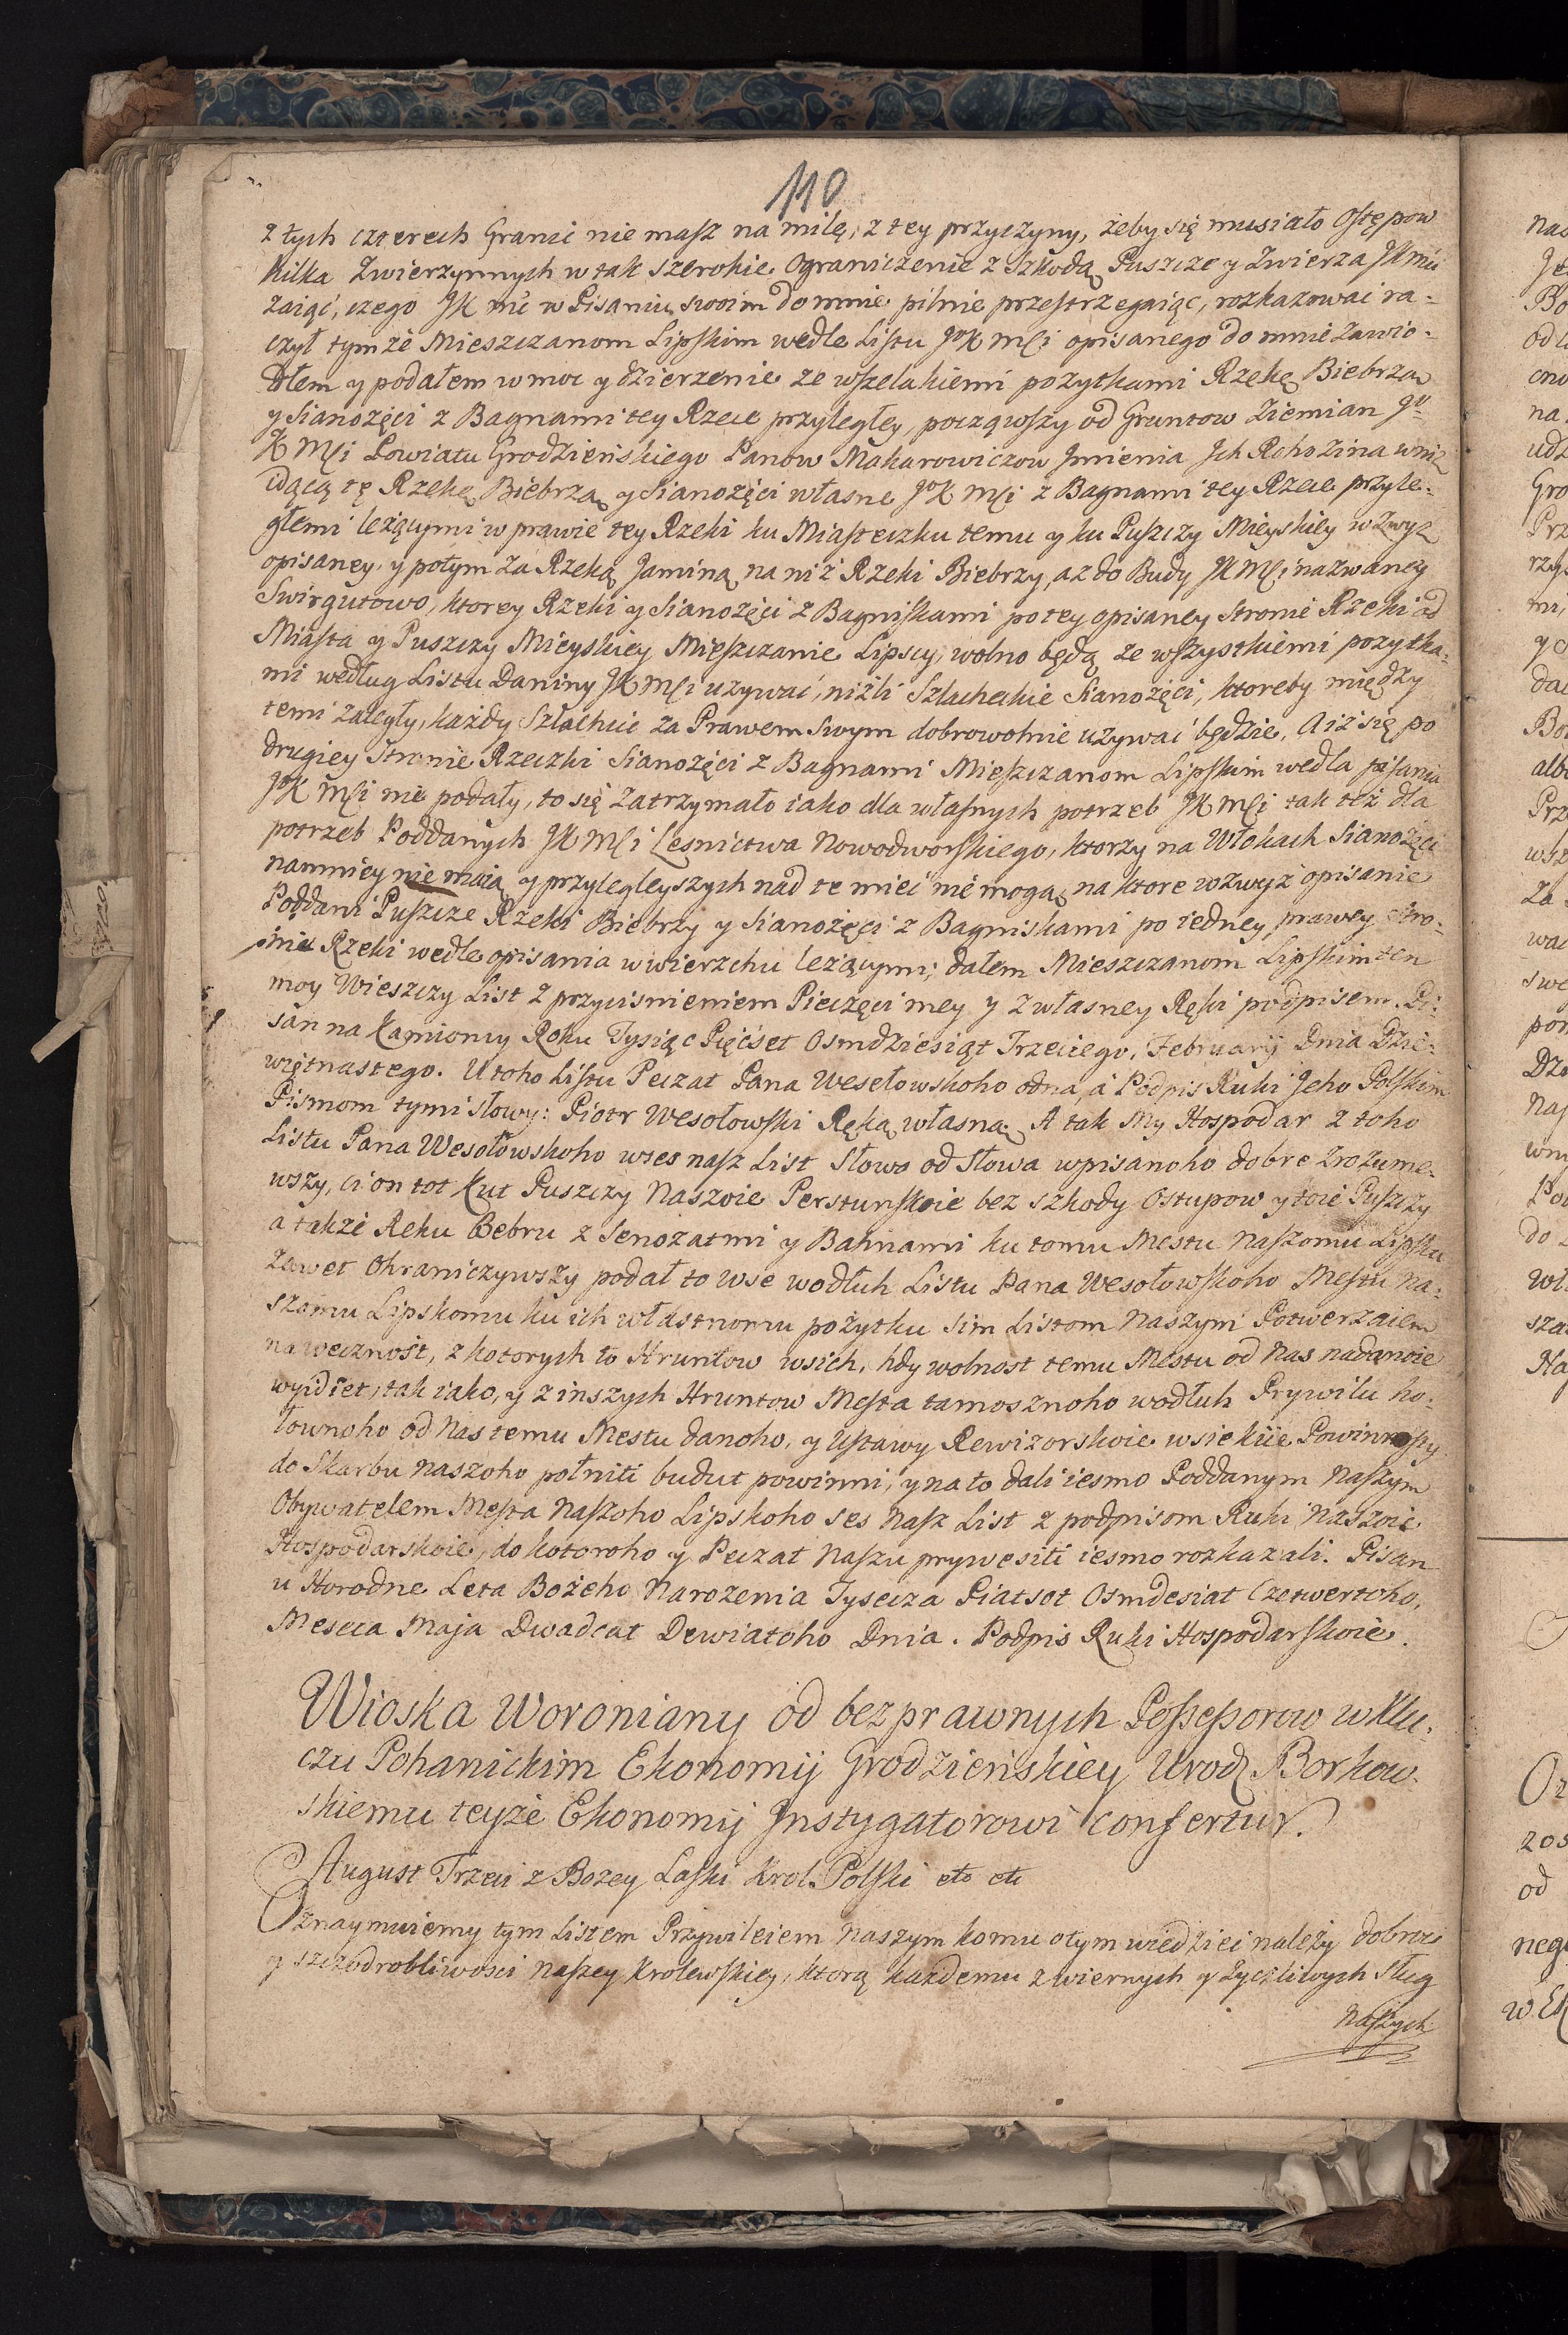 110
z tych czterech Granic nie masz na milę, z tey przyczyny, żeby się musiało Ostępow
kilka Zwierzynnych w tak szerokie Ograniczenie z szkodą Puszcze y Zwierza JKMci
zaiąć, czego JKMć w Pisaniu swoim do mnie pilnie przestrzegaiąc, rozkazować ra-
czył tymże Mieszczanom Lipskim wedle Listu JoKMści opisanego do mnie zawio-
dłem y podałem w moc y dzierzenie ze wszelakiemi pożytkami Rzekę Biebrzą
y Sianożęci z Bagnami tey Rzece przyległey, począwszy od Gruntow Ziemian Jo
KMści Powiatu Grodzieńskiego Panow Makarowiczow Jmienia Jch Rohożina wniż
idącą tę Rzekę Biebrzą y Sianożęci własne JoKMści z Bagnami tey Rzece przyle-
głemi leżącymi w prawie tey Rzeki ku Miasteczku temu y ku Puszczy Mieyskiey wzwyż
opisaney, y potym za Rzeką Jaminą na niż Rzeki Biebrzy, aż do Budy JKMści nazwaney
Swirgutowo, ktorey Rzeki y Sianożęci z Bagniskami po tey opisaney stronie Rzeki od
Miasta y Puszczy Mieyskiey Mieszczanie Lipscy, wolno będą ze wszystkiemi pożytka-
mi według Listu Daniny JKMści używać, niźli Szlacheckie Sianożęci, ktoreby między
temi zaległy, każdy Szlachcic za Prawem swym dobrowolnie używać będzie, A iż się po
drugiey stronie Rzeczki Sianożęci z Bagnami Mieszczanom Lipskim wedla pisania
JoKMści nie podały, to się zatrzymało iako dla własnych potrzeb JKMści tak też dla
potrzeb Poddanych JKMści Lesnictwa Nowodworskiego, ktorzy na Włokach Sianożęci
namniey nie maią y przyległeyszych nad te mieć nie mogą, na ktore wzwyż opisanie
Poddani Puszcze Rzeki Biebrzy y Sianożęci z Bagniskami po iedney prawey stro-
nie Rzeki wedle opisania w wierzchu leżącymi, dałem Mieszczanom Lipskim ten
moy Wieszczy List z przycisnieniem Pieczęci mey y z własney Ręki podpisem. Pi-
san na Kamiony Roku Tysiąc Pięćset Osmdziesiąt Trzeciego, Februarij Dnia Dzie-
więtnastego. U toho Listu Peczat Pana Wesełowskoho odna, a Podpis Ruki Jeho Polskim
Pismom tymi słowy: Piotr Wesołowski Ręką własną. A tak My Hospodar z toho
Listu Pana Wesołowskoho wses nasz List słowo od słowa wpisanoho dobre zrozume-
wszy, ci on tot Kut Puszczy Naszoie Perstunskoie bez szkody Ostupow y toie Puszczy
a także Reku Bebru z Senozatmi y Bahnami ku tomu Mestu Naszomu Lipsku
zawet Ohraniczywszy podał to wse wodłuh Listu Pana Wesołowskoho Mestu Na-
szomu Lipskomu ku ich własnomu pożytku sim Listom Naszym Potwerzaiem
na wecznost, z kotorych to Hruntow wsich, hdy wolnost temu Mestu od Nas nadanoie
wyidiet, tak iako, y z inszych Hruntow Mesta tamosznoho wodłuh Prywilu ho-
łownoho od Nas temu Mestu danoho, y Ustawy Rewizorskoie wsiekiie Powinnosty
do Skarbu naszoho połniti budut powinni, y na to dali iesmo Poddanym Naszym
Obywatelem Mesta Naszoho Lipskoho ses Nasz List z podpisom Ruki Naszoie
Hospodarskoie, do kotoroho y Peczat Naszu prywesiti iesmo rozkazali. Pisan
u Horodne Leta Bożeho Narożenia Tysecza Piatsot Osmdesiat Czetwertoho,
Meseca Maja Dwadcat Dewiatoho Dnia. Podpis Ruki Hospodarskoie.
Wioska Woroniany od bezprawnych Possessorow w Klu-
czu Pohanickim Ekonomij Grodzieńskiey Urodz. Borkow-
skiemu teyże Ekonomij Jnstygatorowi confertur.
August Trzeci z Bożey Łaski Krol Polski etc etc
Oznaymuiemy tym Listem Przywileiem Naszym komu o tym wiedzieć należy dobroci
y szczodrobliwości Naszey Krolewskiey, ktorą każdemu z wiernych y życzliwych sług
Naszych